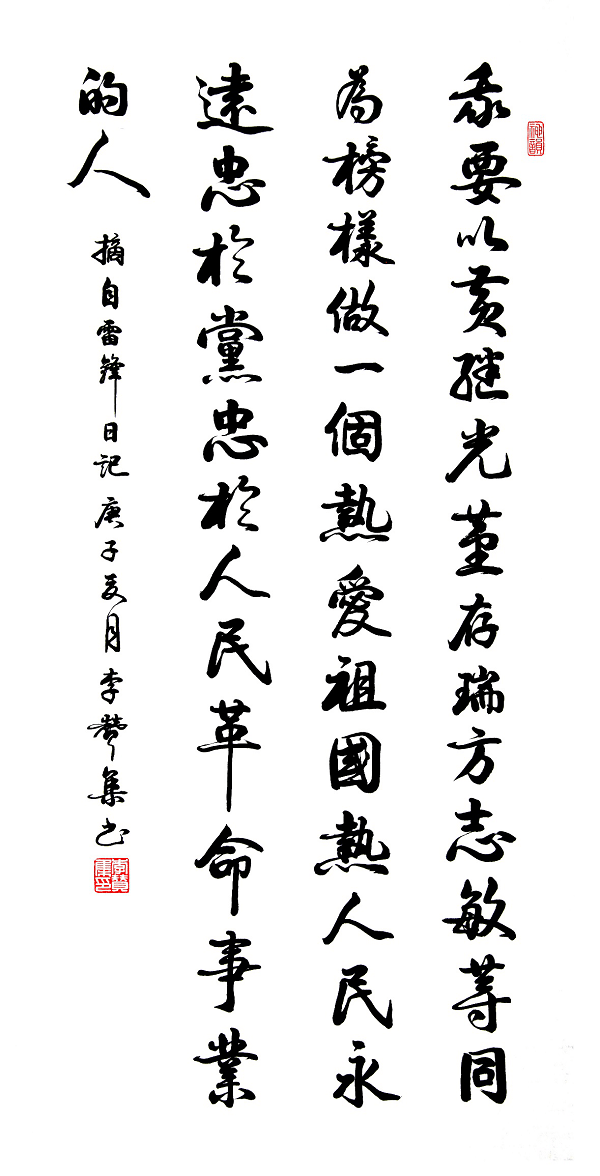 我要以黄继光董存瑞方志敏等同
為榜樣做一個熱愛祖國熱人民永
遠忠於黨忠於人民革命事業
的人
摘自雷鋒日記庚子夏月李贊集书
神韻